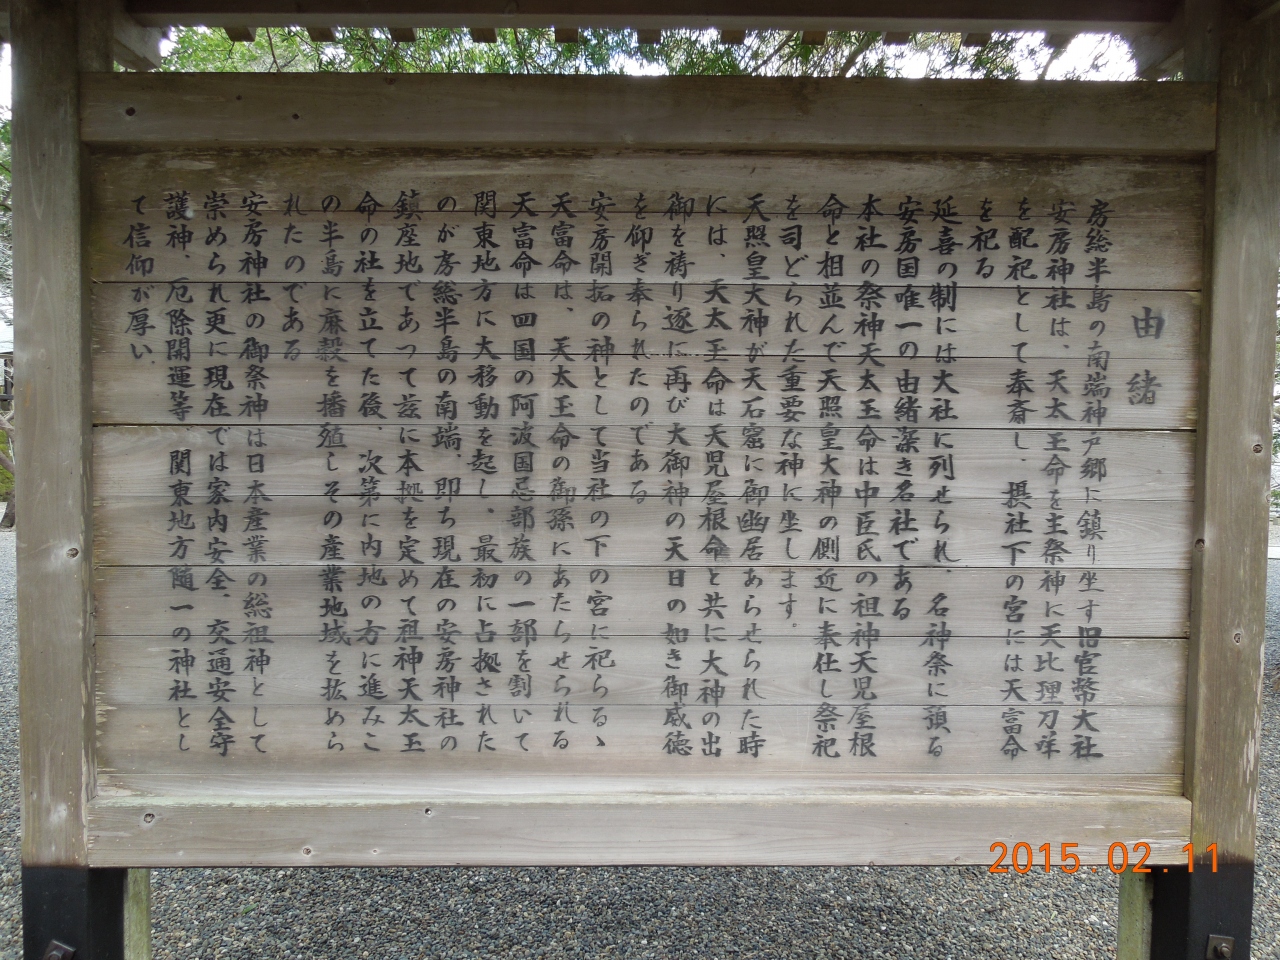 由緒
房総半島の南端神戸郷に鎮り坐す旧官幣大社
安房神社は、天太玉命を主祭神に天比理刀咩
を配祀として奉斎し、摂社下の宮には天富命
を祀る
延喜の制には大社に列せられ、名神祭に預る
安房国唯一の由緒深き名社である
本社の祭神天太玉命は中臣氏の祖神天児屋根
命と相並んで天照皇大神の側近に奉仕し祭祀
を司どられた重要な神に坐します。
天照皇大神が天石窟に御幽居あらせられた時
には、天太玉命は天児屋根命と共に大神の出
御を祷り逐に再び大御神の天日の如き御威徳
を仰ぎ奉られたのである
安房開拓の神として当社の下の宮に祀らるゝ
天富命は、天太玉命の御孫にあたらせられる
天富命は四国の阿波国忌部族の一部を割いて
関東地方に大移動を起し、最初に占拠された
のが房総半島の南端、即ち現在の安房神社の
鎮座地であつて茲に本拠を定めて祖神天太玉
命の社を立てた後、次第に内地の方に進みこ
の半島に麻穀を播殖しその産業地域を拡めら
れたのである
安房神社の御祭神は日本産業の総祖神として
崇められ更に現在では家内安全、交通安全守
護神、厄除開運等　関東地方随一の神社とし
て信仰が厚い、
2015.02.11